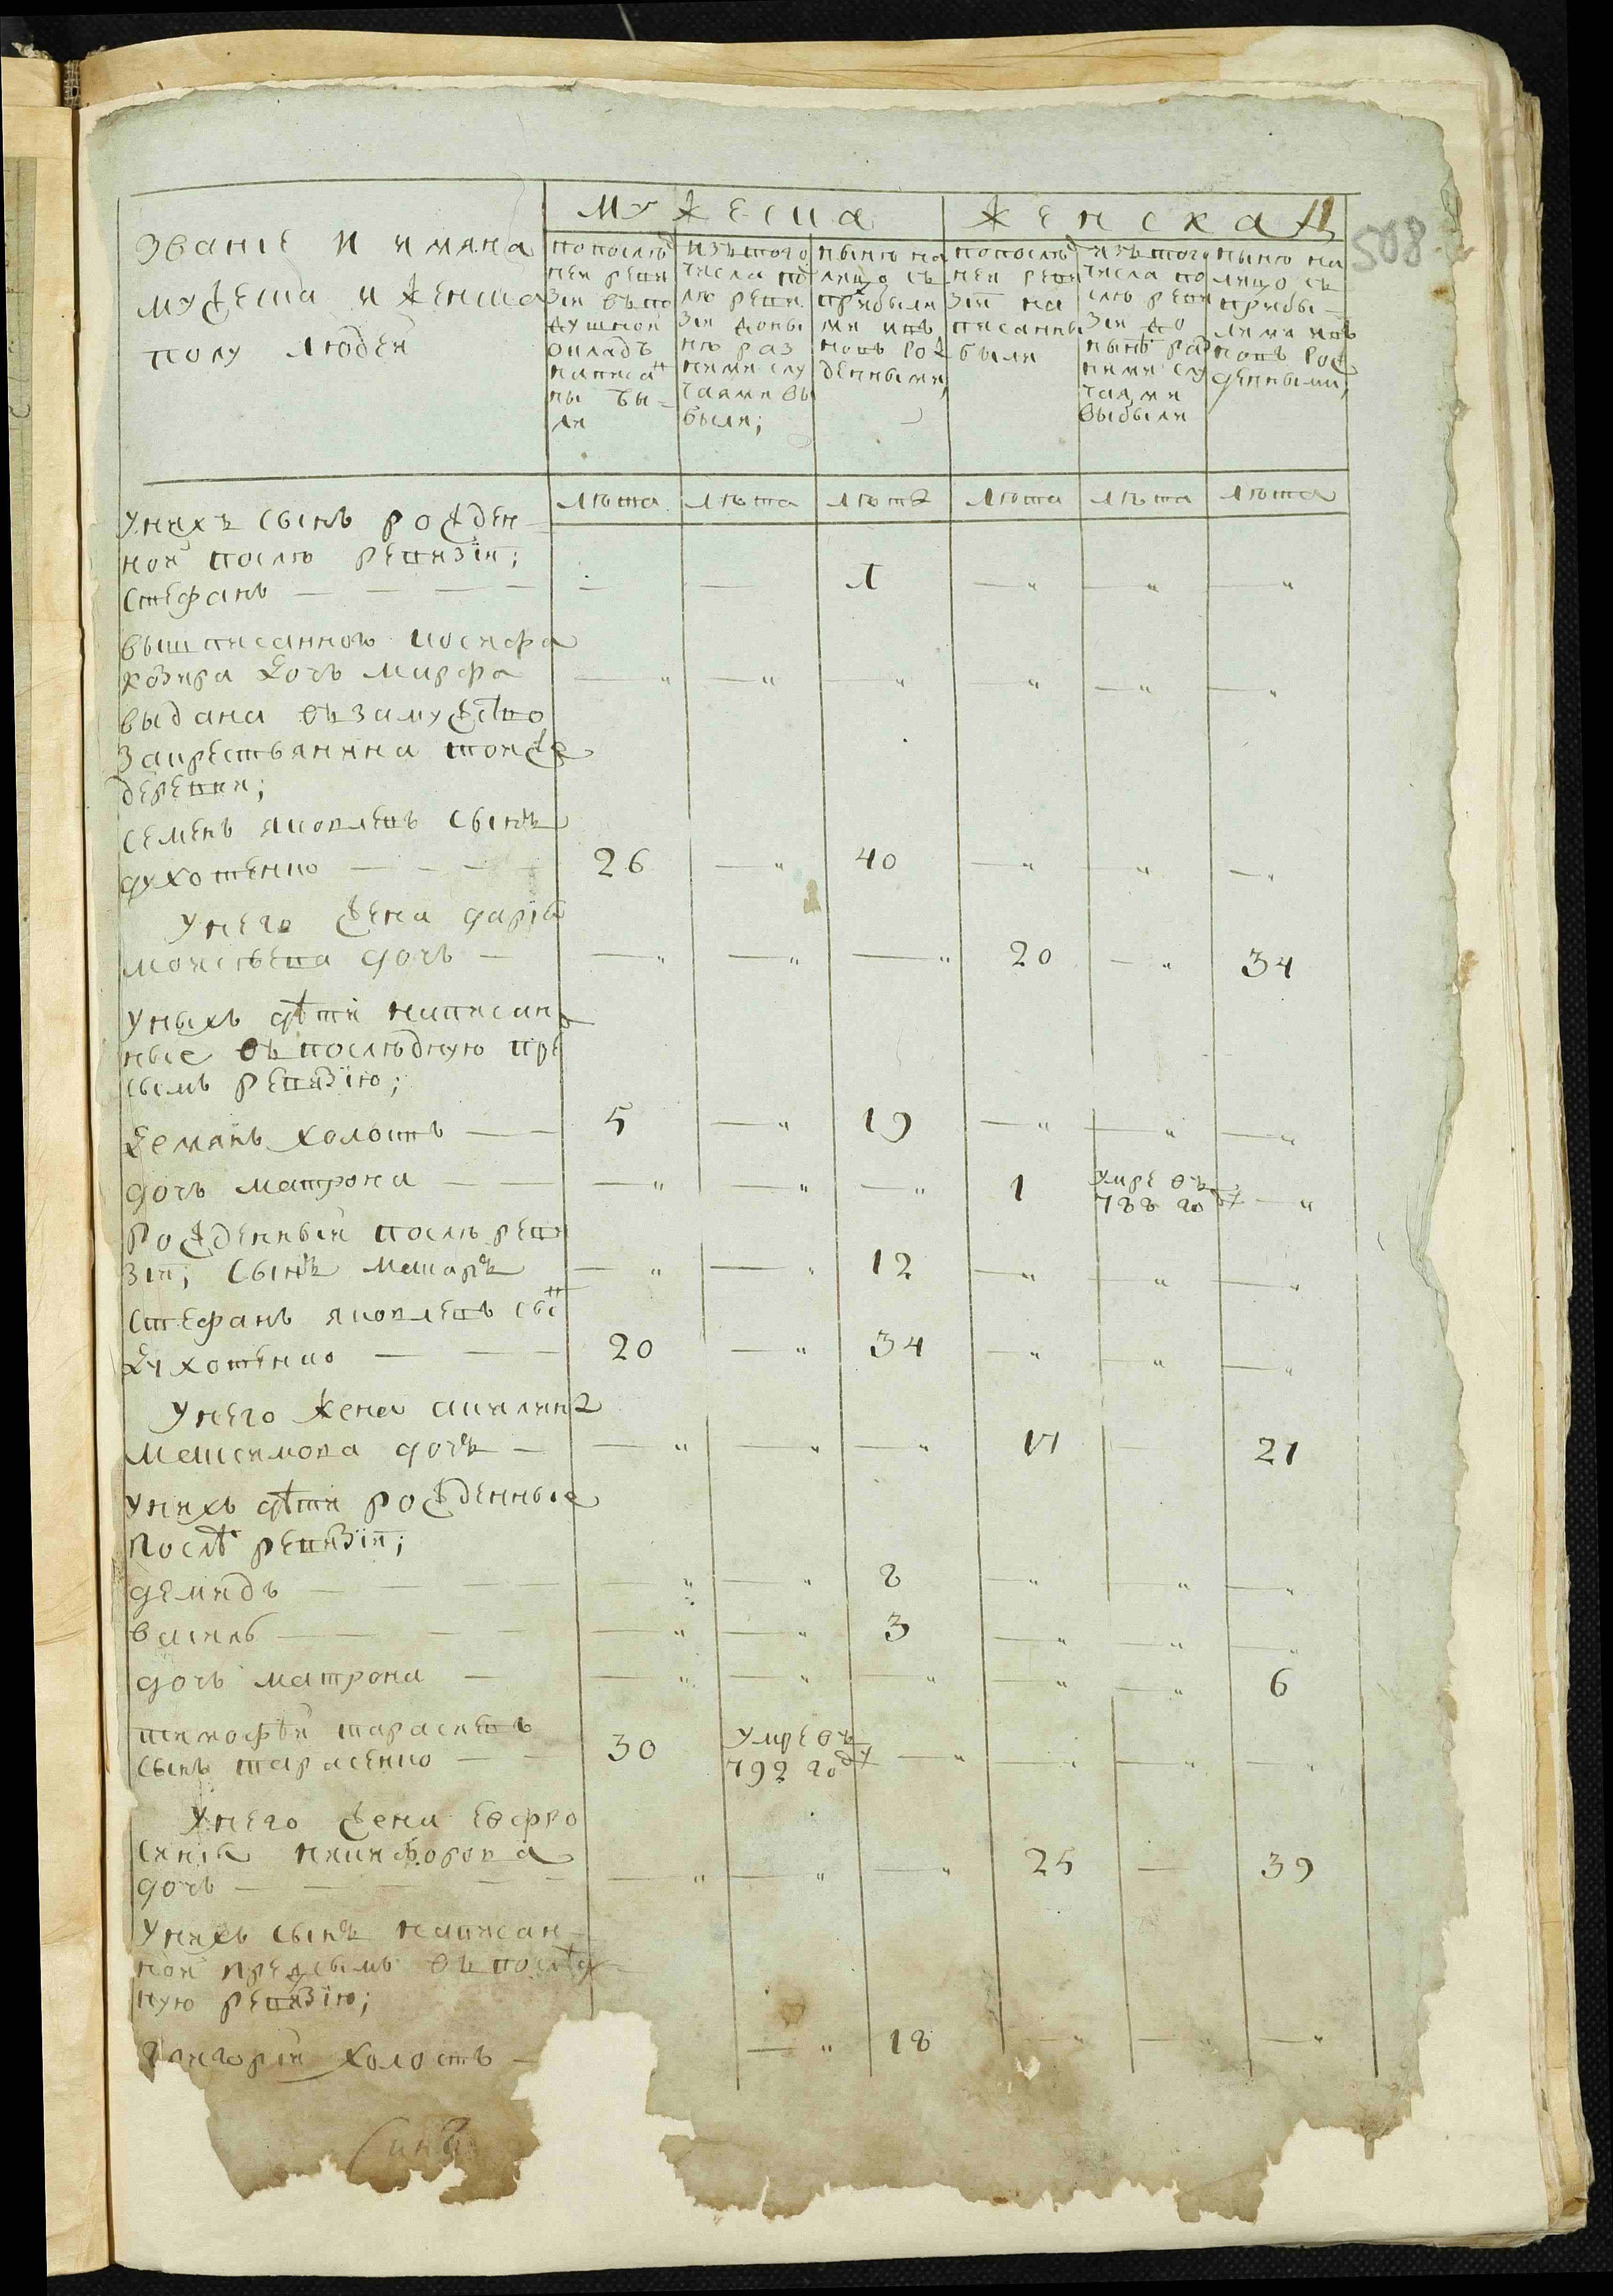 508
Мужеска Женска
Званіе и имяна
мужеска и женска
полу людей
по послѣд
ней реви
зіи въ по
душной
окладъ
написан
ны бы-
ли
изъ того
числа по
слѣ реви
зіи до ны
нѣ раз
ными слу
чаями вы
были;
нынѣ на
лицо съ
прибылы
ми и въ
новь рож
денными;
по послѣд
ней реви
зіи на
писанны
были
изъ того
числа по
слѣ реви
зіи до
нынѣ раз
ными слу
чаями
выбыли
нынѣ на
лицо съ
прибы-
лыми и въ
новь рож
денными;
лѣта лѣта лѣта лѣта лѣта лѣта
У нихъ сынъ рожден-
ной послѣ ревизіи;
Стефанъ — — — — — 1 — " — " — "
вышписанного иосифа
козира дочъ марфа — " — " — " " — " — "
выдана въ замужство
за крестьянина той же
деревни;
Семенъ яковлевъ сынъ
духотенко — — — 26 — " 40 — " — " — "
У него жена дарія
моисѣева дочъ — — " — " — " 20 — " 34
У ныхъ дѣти написан
ные въ послѣдную пре
сымъ ревизію;
Демянъ холостъ — — 5 — " 19 — " — " — "
дочъ матрона — — — " — " — " 1 умре въ 788 году — "
Рожденный послѣ реви
зіи; сынъ макаръ — " — " 12 — " — " — "
Стефанъ яковлевъ сын
духотенко — — — 20 — " 34 — " — " — "
У него жена акилина
максимова дочъ — — " — " — " 17 21
У нихъ дѣти рожденные
послѣ ревизіи;
демидъ — — — — " — " 8 — " — " — "
василь — — — — — " — " 3 — " — " — "
дочъ матрона — — " — " — " — " — " 6
тимофѣй тарасиевъ
сынъ тарасенко — — 30 умре въ 792 году — " — " — " — "
У него жена евфро
синія никифорова
дочъ — — — — — — " — " — " 25 — 39
У нихъ сынъ написан-
ной предсымъ въ послѣд-
ную ревизію;
Григорій холостъ — — " 18 — " — " — "